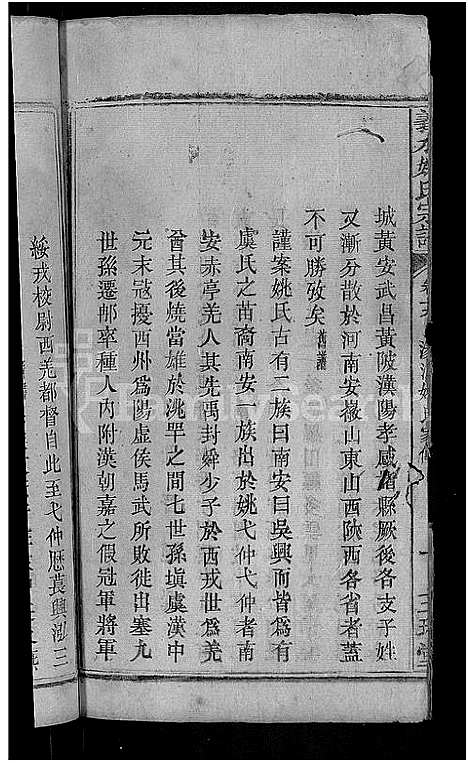 義水姚氏宗譜
城黃安武昌黃陂漢陽孝感各縣厥後各支子姓
又漸分散於河南安嶶山東山西陝西各省者蓋
不可勝攷矣 舊譜
謹案姚氏古有二族曰南安曰吳興而皆爲有
虞氏之苗裔南安一族出於姚弋仲弋仲者南
安赤亭羌人其先禹封舜少子於西戎世爲羌
酋其後燒當雄於洮罕之間七世孫塡虞漢中
元末寇擾西州爲楊虛侯馬武所敗徙出塞九
世孫遷郍率種人內附漢朝嘉之假冠軍將軍
綏戎校尉西羌都督自此至弋仲歷萇興泓三
FamilySearch